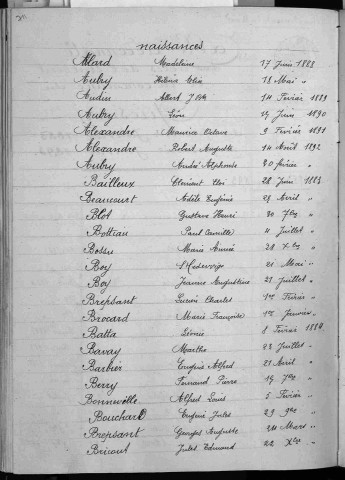 naissances
Allard Madeleine 17 Juin 1888
Aubry Hélène Elia 18 Mai "
Audin Albert J Bte 14 Février 1889
Aubry Léon 19 Juin 1890
Alexandre Maurice Octave 9 Février 1891
Alexandre Robert Auguste 14 Août 1892
Aubry André Alphonse 20 "
Bailleux Clément Eloi 28 Juin 1883
Beaucourt Adèle Eugénie 28 Avril "
Blot Gustave Henri 30 7bre "
Bottiau Paul Camille 4 Juillet "
Bossu Marie Aimée 28 Xbre "
Boy 21 Mai "
Boy Jeanne Augustine 21 Juillet "
Brepsant Lucien Charles 1er Février "
Brocard Marie Françoise 1er Janvier "
Batta Léonie 8 Février 1884
Bavay Marthe 23 Juillet "
Barbier Eugène Alfred 21 Avril "
Berry Fernand Pierre 19 7bre "
Bonnevalle Alfred Louis 5 Février "
Bouchard Eugène Jules 29 9bre "
Brepsant Georges Auguste 24 Mars "
Bricout Jules Edmond 22 Xbre "